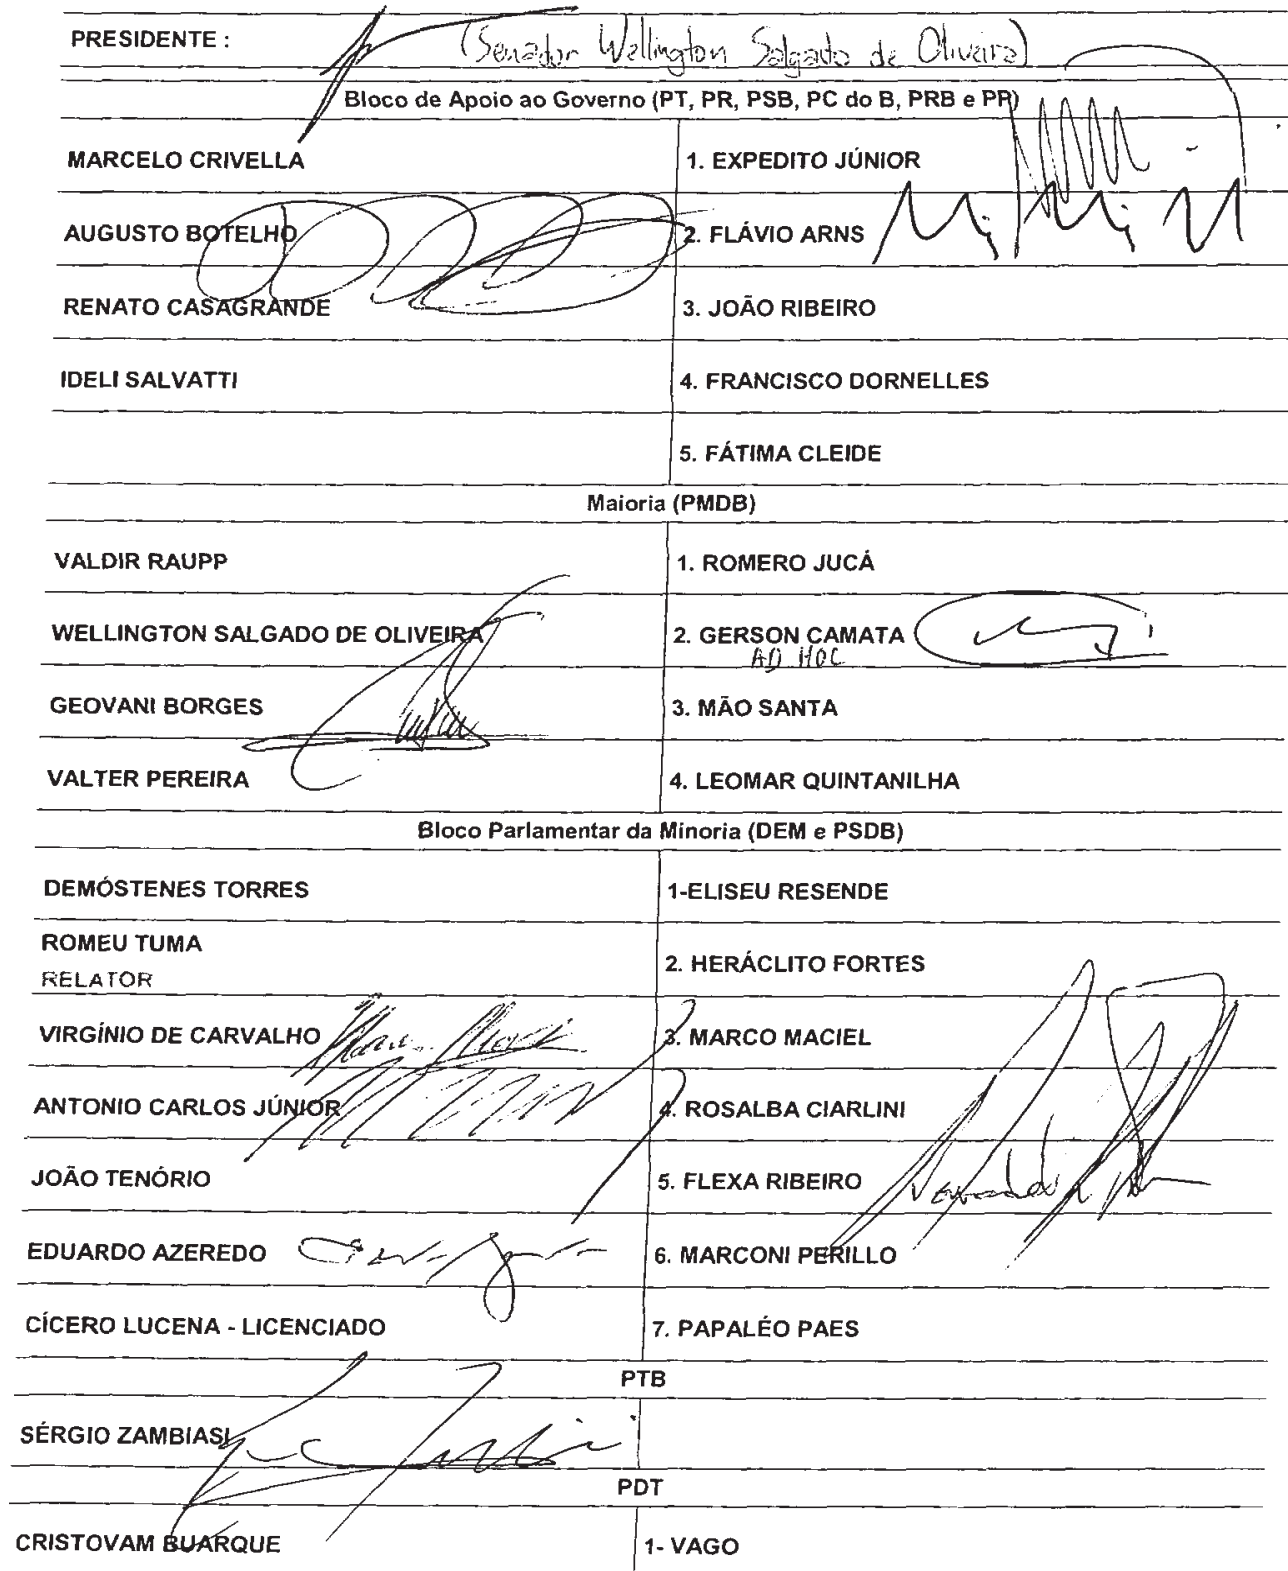 PRESIDENTE : (Senador Wellington Salgado de Oliveira)
Bloco de Apoio ao Governo (PT, PR, PSB, PC do B, PRB e PP)
MARCELO CRIVELLA 1. EXPEDITO JÚNIOR
AUGUSTO BOTELHO 2. FLÁVIO ARNS
RENATO CASAGRANDE 3. JOÃO RIBEIRO
IDELI SALVATTI 4. FRANCISCO DORNELLES
5. FÁTIMA CLEIDE
Maioria (PMDB)
VALDIR RAUPP 1. ROMERO JUCÁ
WELLINGTON SALGADO DE OLIVEIRA 2. GERSON CAMATA
AD HOC
GEOVANI BORGES 3. MÃO SANTA
VALTER PEREIRA 4. LEOMAR QUINTANILHA
Bloco Parlamentar da Minoria (DEM e PSDB)
DEMÓSTENES TORRES 1-ELISEU RESENDE
ROMEU TUMA
RELATOR
2. HERÁCLITO FORTES
VIRGÍNIO DE CARVALHO 3. MARCO MACIEL
ANTONIO CARLOS JÚNIOR 4. ROSALBA CIARLINI
JOÃO TENÓRIO 5. FLEXA RIBEIRO
EDUARDO AZEREDO 6. MARCONI PERILLO
CÍCERO LUCENA - LICENCIADO 7. PAPALÉO PAES
PTB
SÉRGIO ZAMBIASI
PDT
CRISTOVAM BUARQUE 1- VAGO